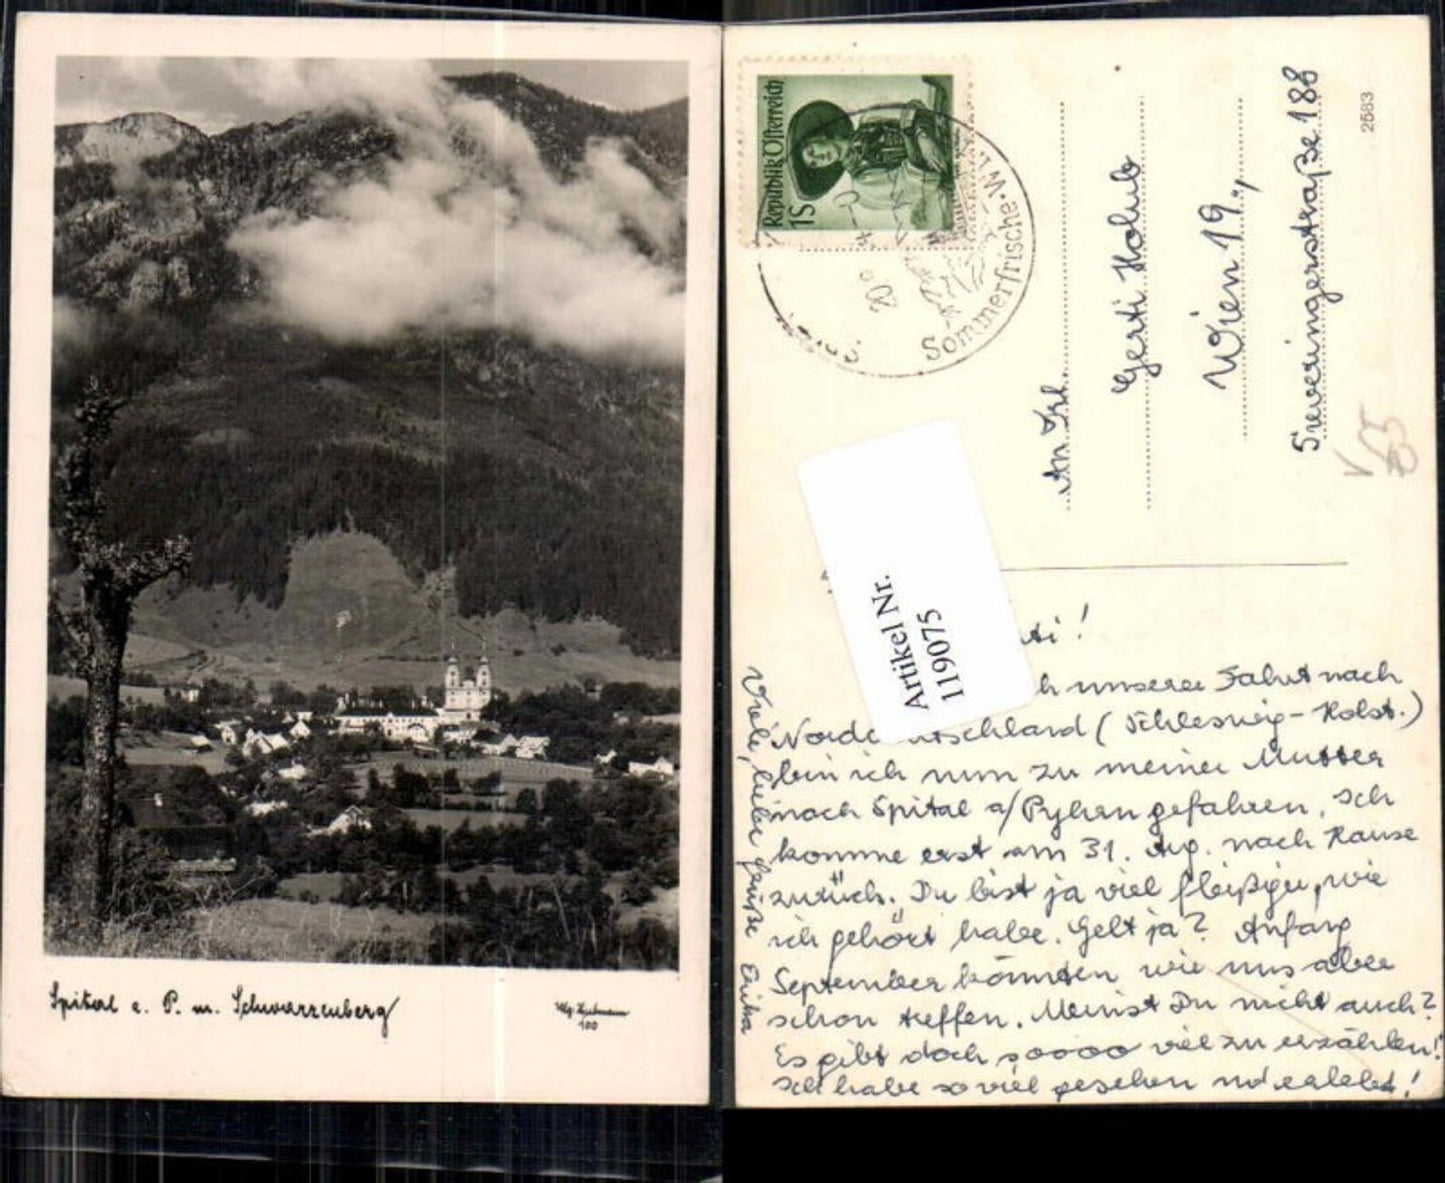 Spital a. P. m. Schwarzenberg
100
Republik Österreich
1S
Sommerfrische · W
20
2583
An Frl.
Gerti Holub
Wien 19.,
Sieveringerstraße 188
Artikel Nr.
119075
ti!
h unserer Fahrt nach
Nordd tschland (Schleswig-Holst.)
bin ich nun zu meiner Mutter
nach Spital a/Pyhrn gefahren. Ich
komme erst am 31. Aug. nach Hause
zurück. Du bist ja viel fleißiger, wie
ich gehört habe. Gelt ja? Anfang
September könnten wir uns aber
schon treffen. Meinst Du nicht auch?
Es gibt doch soooo viel zu erzählen!
Ich habe so viel gesehen und erlebt!
Viele, liebe Grüße Erika